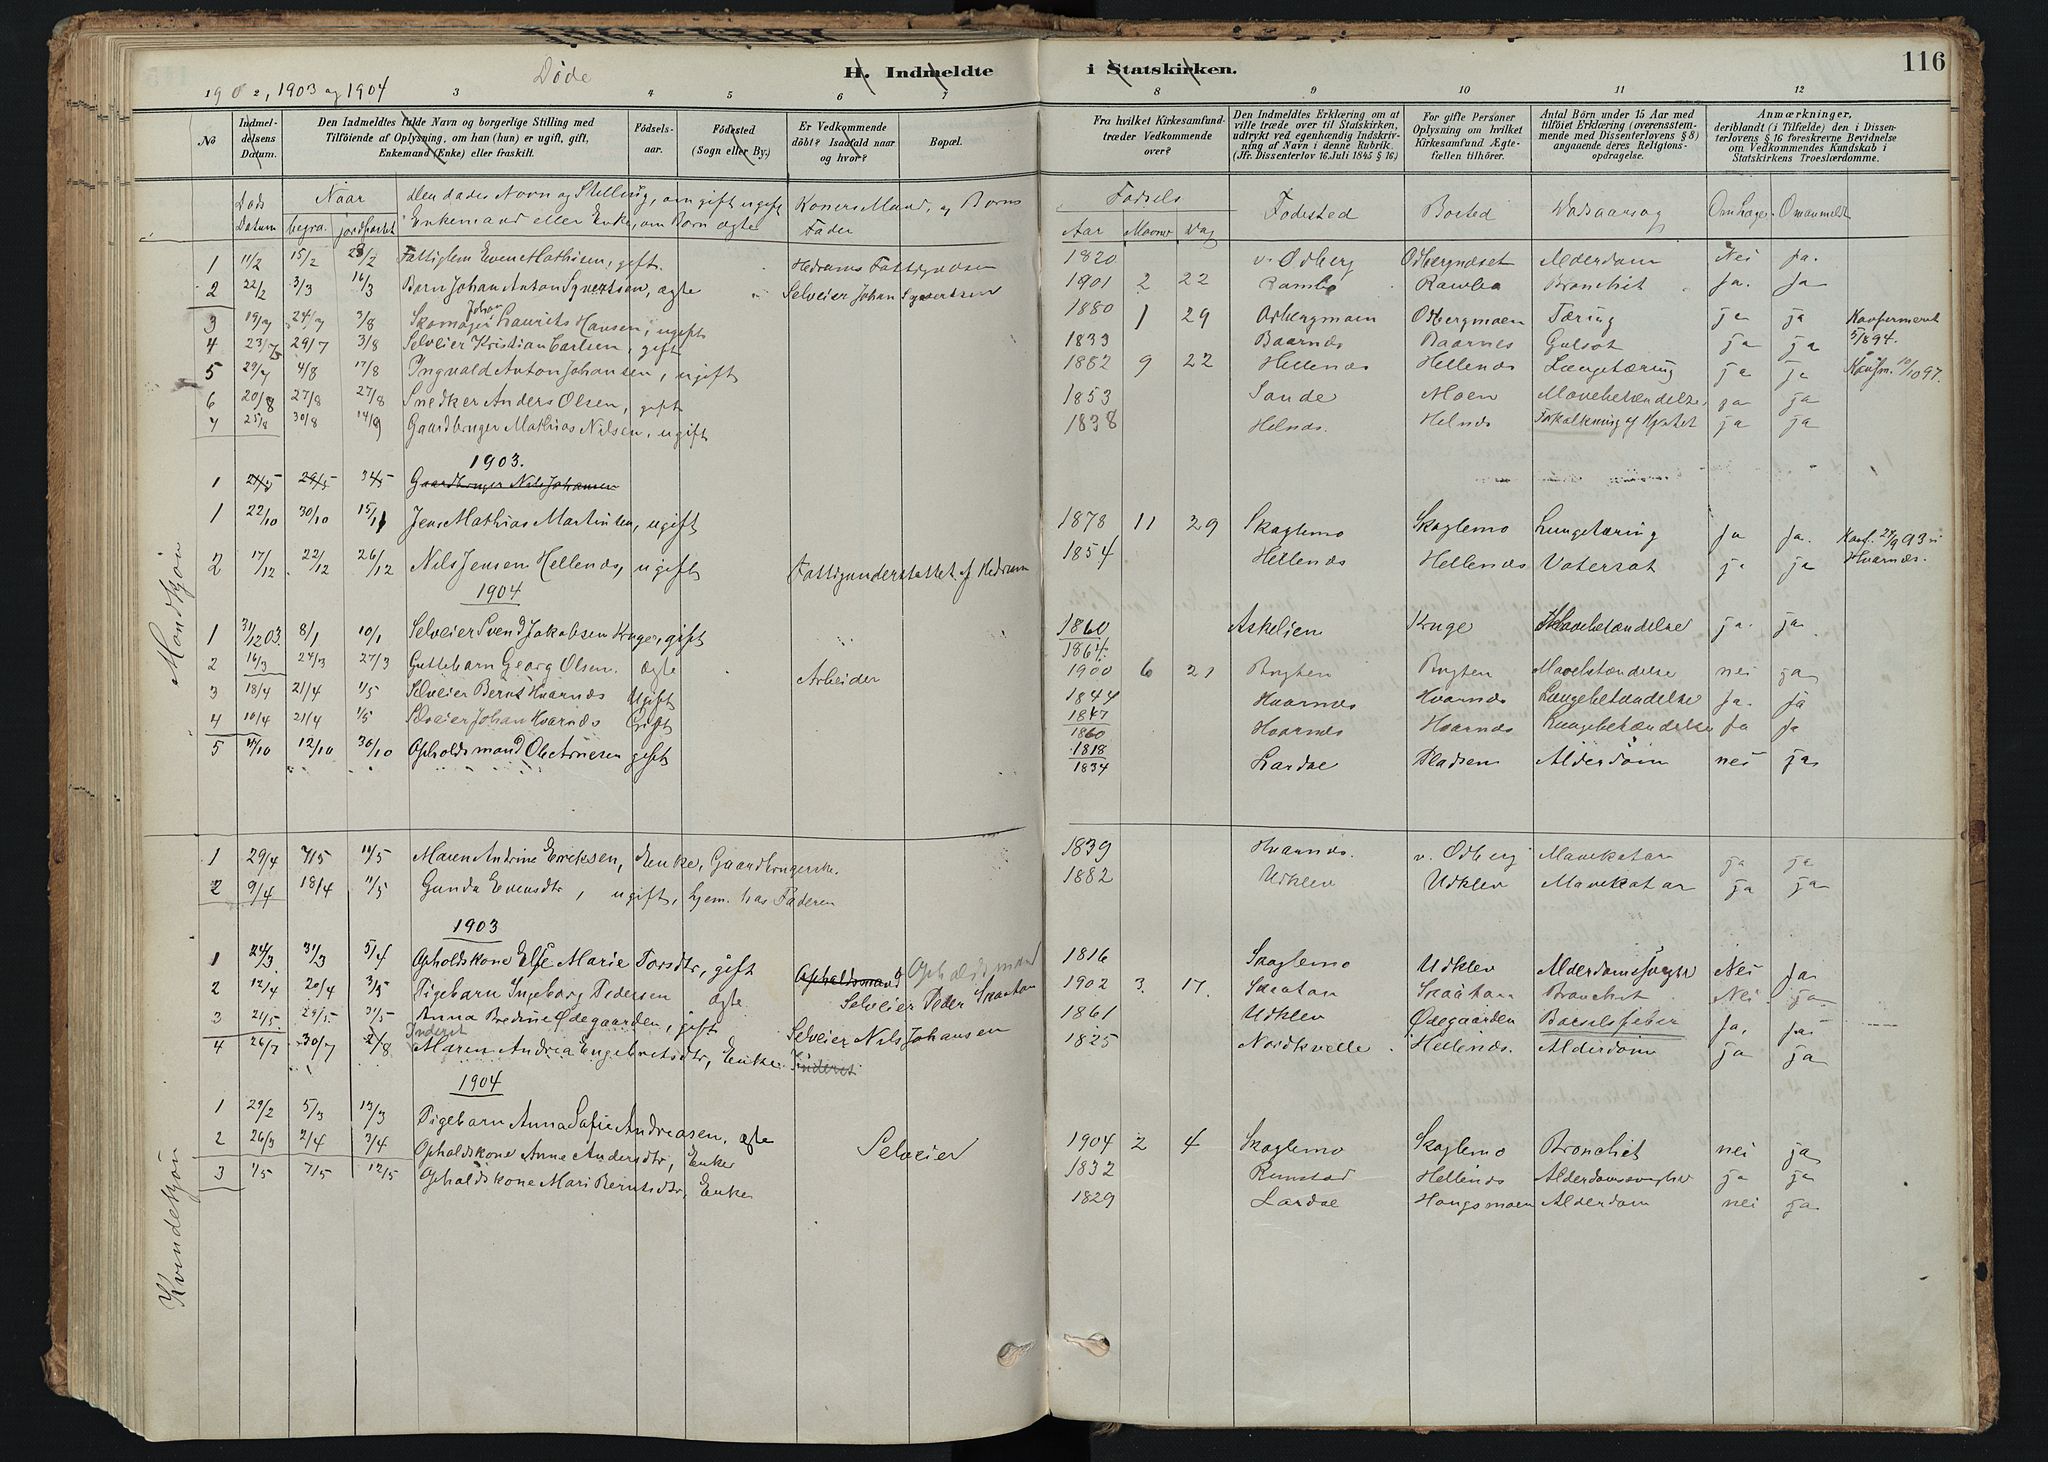 116
Døde
H. Indmeldte i Statskirken.
1902, 1903 og 1904
3 4 5 6 7 8 9 10 11 12
No
Indmeldelsens Datum.
Den Indmeldtes fulde Navn og borgerlige Stilling med Tilföiende af Oplysning, om han (hun) er ugift, gift, Enkemand (Enke) eller fraskilt.
Födselsaar.
Födested (Sogn eller By.)
Er Vedkommende döbt? Isaafald naar og hvor?
Bopæl.
Fra hvilket Kirkesamfund træder Vedkommende over?
Den Indmeldtes Erklæring om at ville træde over til Statskirken, udtrykt ved egenhændig Indskrivning af Navn i denne Rubrik. (Jfr. Dissenterlov 16. Juli 1845 § 16)
For gifte Personer Oplysning om hvilket Kirkesamfund Ægtefællen tilhörer.
Antal Börn under 15 Aar med tilföiet Erklæring (overensstemmende med Dissenterlovens § 8) angaaende deres Religionsopdragelse.
Anmærkninger, deriblandt (i Tilfælde) den i Dissenterlovens § 16 foreskrevne Bevidnelse om Vedkommendes Kundskab i Statskirkens Troeslærdomme.
Døds Datum
Naar
begra. jordfæstet
Den dødes Navn og Stilling, om gift ugift Enkemand eller Enke, om Barn ægte
Koners Mand, og Børns Fader
Fødsels
Aar Maaned Dag
Fødested Bosted Dødsaarsag Om læge Om anmeldt
Mandkjøn
1 11/2 15/2 28/2 Fattiglem Even Mathisen, gift. Hedrums Fattigvæsen 1820 v. Odberg Odbergødset Alderdom Nei Ja.
2 22/2 3/3 16/3 Barn Johan Anton Syvertsen, ægte Selveier Johan Syvertsen 1901 2 22 Rambo Rambo Bronchit Ja. Ja
3 19/7 24/7 3/8 Skomager Johan Laurits Hansen, ugift 1880 1 29 Odbergmoen Odbergmoen Tæring ja ja Konfirmeret 5/894.
4 23/7 29/7 3/8 Selveier Kristian Carlsen, gift 1839 Baarnes Baarnes Gulsot ja ja
5 29/7 4/8 17/8 Ingvald Anton Johansen, ugift 1882 9 22 Hellenes Hellenes Lungetæring ja ja Konfirm. 10/1097.
6 20/8 27/8 27/8 Snedker Anders Olsen, gift 1853 Sande Moen Mavebetændelse ja ja
7 25/8 30/8 14/9 Gaardbruger Mathias Nilsen, ugift 1838 Helnes. Helnes Forkalkning af Hjertet ja ja
1903.
1 24/5 29/5 31/5 Gaardbruger Nils Johansen
1 22/10 30/10 15/11 Jens Mathias Martinsen, ugift 1878 11 29 Skaglemo Skaglemo Lungetæring Ja Ja. Konf. 24/9 93 i Hvarnes.
2 17/12 22/12 26/12 Nils Jensen Hellenes, ugift Fattigunderstøttet af Hedrum 1854 Hellenes Hellenes Vatersot ja ja
1904
1 31/12 03 8/1 10/1 Selveier Svend Jakobsen Kruge, gift 1860 Askelien Kruge Mavebetændelse ja. ja
2 16/3 24/3 27/3 Guttebarn Georg Olsen. ægte Arbeider 1864 1900 6 21 Bugten Bugten Mavebetændelse nei ja
3 18/4 21/4 1/5 Selveier Bernt Hvarnes Ugift 1844 Hvarnes Hvarnes Lungebetændelse Ja. Ja
4 10/4 21/4 1/5 Selveier Johan Hvarnes Gift 1847 1860 Hvarnes Hvarnes Lungebetændelse Ja Ja
5 4/10 12/10 30/10 Opholdsmand Ole Arnesen gift 1818 1834 Lardae Pladsen Alderdom nei ja
Kvindekjøn
1 29/4 7/5 11/5 Maren Andrine Ericksen, Enke, Gaardbrugerske. 1839 Hvarnes. v. Odberg Mavekatar ja ja
2 9/4 18/4 11/5 Gunda Evensdtr, ugift, hjem. hos Faderen 1882 Udklev Udklev Mavekatar ja ja
1903
1 24/3 31/3 5/4 Opholdskone Else Marie Torsdtr, gift Opholdsmand Opholdsmand 1816 Skaglemo Udklev Alderdomssvaghed Nei Ja
2 12/4 20/4 3/5 Pigebarn Ingeborg Pedersen ægte Selveier Peder Skaatan 1902 3. 17. Skaatan Skaatan Bronchit Nei. ja
3 21/5 29/5 31/5 Anna Bredine Ødegaarden, gift Selveier Nils Johansen 1861 Udklev Ødegaarden Barselsfeber Ja, ja
4 26/7 30/7 2/8 Inderst Maren Andrea Engebretsdtr, Enke. Inderst 1825 Nordkvelle Hellenes. Alderdom ja ja
1904
1 29/2 5/3 13/3 Pigebarn Anna Sofie Andreasen, ægte Selveier 1904 2 4 Skaglemo Skaglemo Bronchit nei ja
2 26/3 2/4 3/4 Opholdskone Anne Andersdtr, Enke 1832 Rimstad Hellenes Alderdomssvaghed ja ja
3 1/5 7/5 12/5 Opholdskone Mari Berntsdtr, Enke 1829 Lardae Hougsmoen Alderdom nei ja